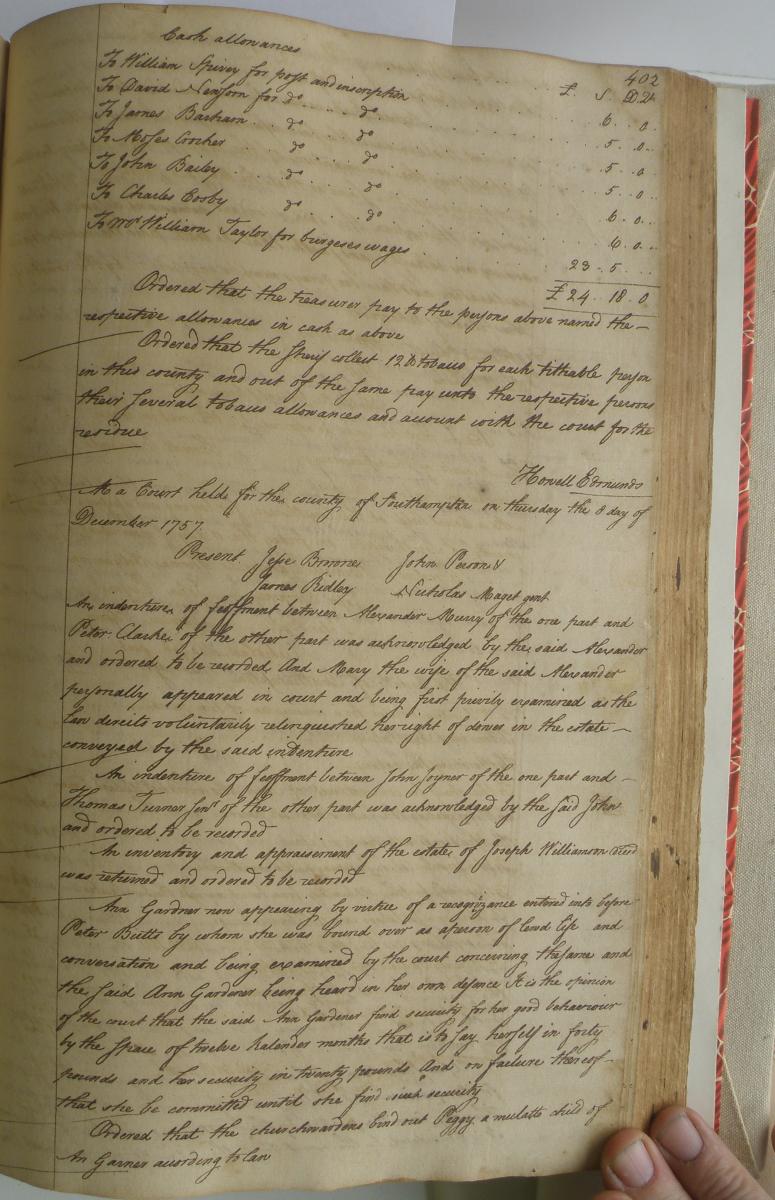 402
Cash allowances £ S D
To William Spivey for post and inscription 6.. 0
To David Newsom for do do 5.. 0
To James Barham do do 5.. 0
To Moses Crocker do do 5.. 0
To John Bailey do do 6.. 0
To Charles Cosby do do 6.. 0
To Mr William Taylor for burgeses wages 23.. 5
£24.. 18.. 0
Ordered that the treasurer pay to the persons above named the
respective allowances in cash as above
Ordered that the Sherif collect 12 lb tobacco for each tithable person
in this county and out of the same pay unto the respective persons
their several tobacco allowances and account with the court for the
residue
Howell Edmunds
At a Court held for the county of Southampton on thursday the 8 day of
December 1757
Present Jesse Browne John Person &
James Ridley Nicholas Maget gent
An indenture of feoffment between Alexander Murry of the one part and
Peter Clarke of the other part was acknowledged by the said Alexander
and ordered to be recorded And Mary the wife of the said Alexander
personally appeared in court and being first privily examined as the
law directs voluntarily relinquished her right of dower in the estate
conveyed by the said indenture
An indenture of feoffment between John Joyner of the one part and
Thomas Turner Junr of the other part was acknowledged by the said John
and ordered to be recorded
An inventory and appraisement of the estate of Joseph Williamson decd
was returned and ordered to be recorded
Ann Gardner now appearing by virtue of a recognizance entered into before
Peter Butts by whom she was bound over as a person of lewd life and
conversation and being examined by the court concerning the same and
the said Ann Gardener being heard in her own defance It is the opinion
of the court that the said Ann Gardener find security for her good behaviour
by the space of twelve Kalender months that is to say herself in forty
pounds and her security in twenty pounds And on failure thereof
that she be committed until she find such security
Ordered that the churchwardens bind out Peggy a mulatto child of
An Garner according to law